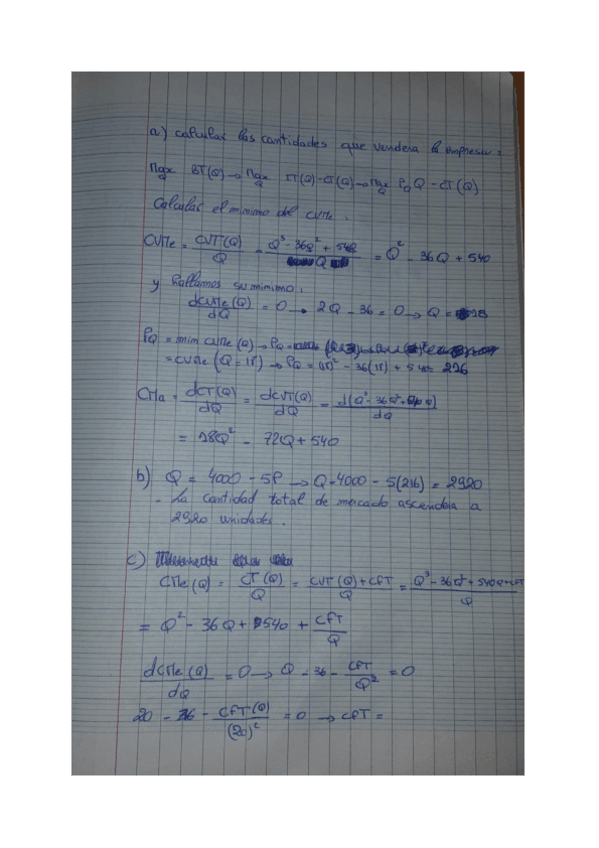 a) calcular las cantidades que vendera la empresa :
Max BT(Q) → Max IT(Q) - CT(Q) → Max P_Q Q - CT(Q)
Q Q Q
Calcular el minimo del CVMe.
CVMe = CVT(Q)/Q = Q³ - 36Q² + 540Q / Q = Q² - 36Q + 540
y hallamos su minimo.
dCVMe(Q)/dQ = 0 → 2Q - 36 = 0 → Q = 18
P_Q = mim CVMe(Q) → P_Q =
= CVMe(Q = 18) → P_Q = (18)² - 36(18) + 540 = 216
CMa = dCT(Q)/dQ = dCVT(Q)/dQ = d(Q³ - 36Q² + Q)/dQ
= 28Q² - 72Q + 540
b) Q = 4000 - 5P → Q = 4000 - 5(216) = 2920
- La cantidad total de mercado ascendia a
2920 unidades.
c)
CMe(Q) = CT(Q)/Q = CVT(Q) + CFT/Q = Q³ - 36Q² + 540Q + CFT/Q
= Q² - 36Q + 540 + CFT/Q
dCMe(Q)/dQ = 0 → Q - 36 - CFT/Q² = 0
20 - 36 - CFT(Q)/(20)² = 0 → CFT =